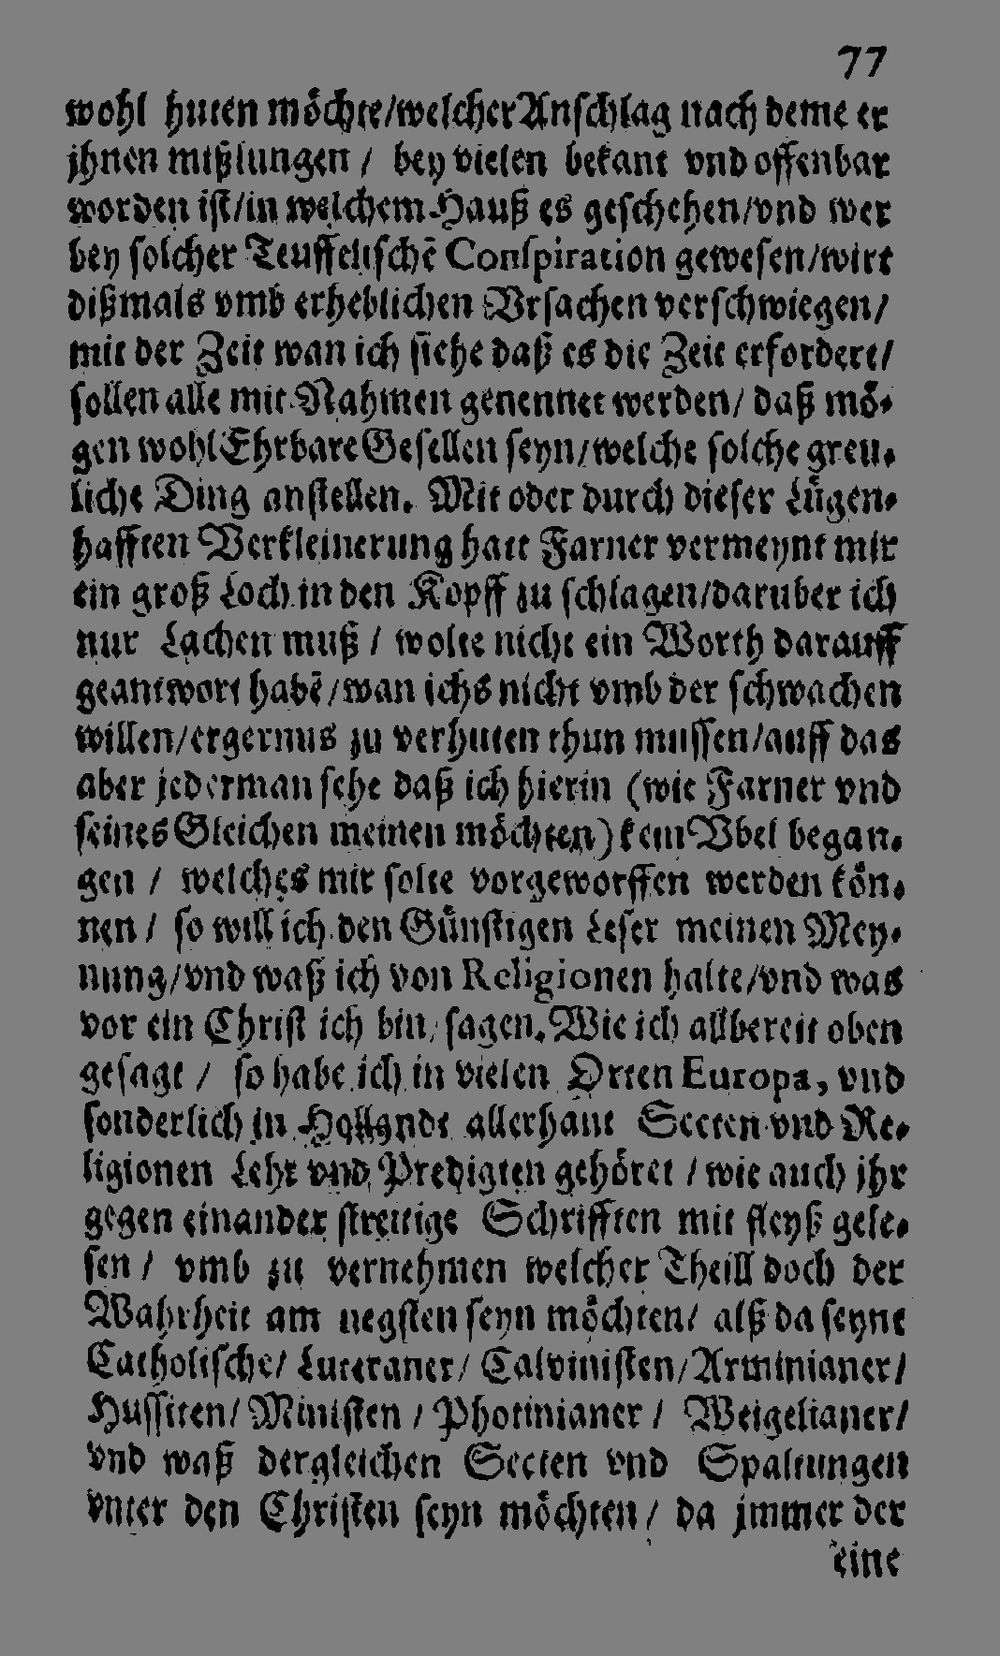 77
wohl huten möchte/welcher Anschlag nach deme er
jhnen mißlungen / bey vielen bekant vnd offenbar
worden ist/in welchem Hauß es geschehen/vnd wer
bey solcher Teuffelischē Conspiration gewesen/wirt
dißmals vmb erheblichen Vrsachen verschwiegen/
mit der Zeit wan ich siehe daß es die Zeit erfordert/
sollen alle mit Nahmen genennet werden/ daß mö-
gen wohl Ehrbare Gesellen seyn/welche solche greu-
liche Ding anstellen. Mit oder durch dieser Lügen-
hafften Verkleinerung hatt Farner vermeynt mir
ein groß Loch in den Kopff zu schlagen/daruber ich
nur Lachen muß / wolte nicht ein Worth darauff
geantwort habē/wan ichs nicht vmb der schwachen
willen/ergernus zu verhuten thun mussen/auff das
aber jederman sehe daß ich hierin (wie Farner vnd
seines Gleichen meinen möchten) kein Vbel began-
gen / welches mir solte vorgeworffen werden kön-
nen / so will ich den Günstigen Leser meinen Mey-
nung/vnd waß ich von Religionen halte/vnd was
vor ein Christ ich bin/sagen. Wie ich allbereit oben
gesagt / so habe ich in vielen Orten Europa, vnd
sonderlich in Hollandt allerhant Secten vnd Re-
ligionen Lehr vnd Predigten gehöret / wie auch jhr
gegen einander streitige Schrifften mit fleyß gele-
sen / vmb zu vernehmen welcher Theill doch der
Wahrheit am negsten seyn möchten/ alß da seynt
Catholische/ Luteraner/ Calvinisten/Arminianer/
Hussiten/ Ministen / Photinianer / Weigelianer/
vnd waß dergleichen Secten vnd Spaltungen
vnter den Christen seyn möchten / da jmmer der
eine